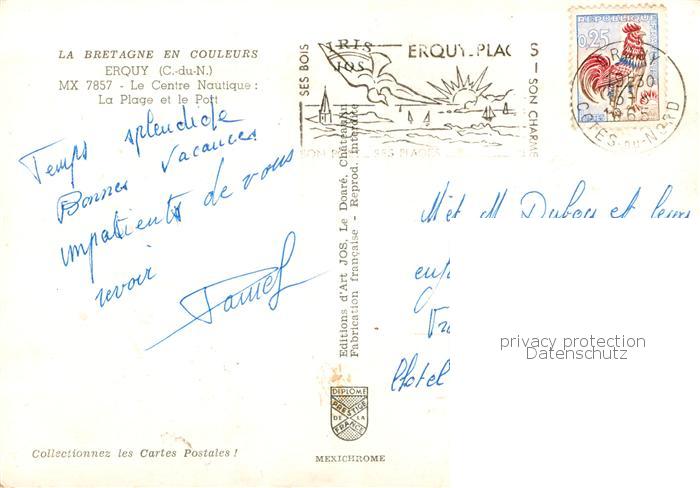 LA BRETAGNE EN COULEURS
ERQUY (C.-du-N.)
MX 7857 - Le Centre Nautique :
La Plage et le Port
Temps splendide
Bonnes vacances
impatients de vous
revoir
Collectionnez les Cartes Postales !
Editions d'Art JOS, Le Doaré, Châteaulin
Fabrication française - Reprod. Interdite
DIPLOME
PRESTIGE
DE LA
FRANCE
MEXICHROME
SES BOIS
IRIS
JOS
ERQUY-PLAG S
SON SES PLAGES
SON CHARME
REPUBLIQUE
0,25
19H30
1965
COTES-DU-NORD
M et M Dubois et leurs
enf
Hotel
privacy protection
Datenschutz